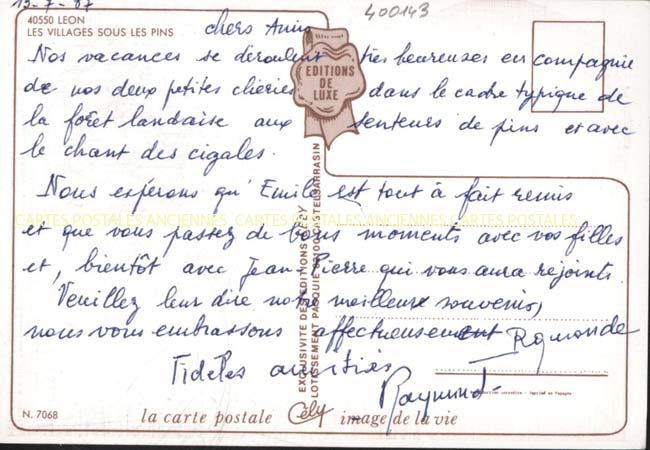 13-7-87
400143
40550 LEON
LES VILLAGES SOUS LES PINS
chers Amis
Nos vacances se déroulent très heureuses en compagnie
de nos deux petites chéries dans le cadre typique de
la forêt landaise aux senteurs de pins et avec
le chant des cigales.
Nous espérons qu'Emile est tout à fait remis
et que vous passez de bons moments avec vos filles
et, bientôt avec Jean-Pierre qui vous aura rejoints.
Veuillez leur dire notre meilleur souvenir,
nous vous embrassons affectueusement
Fidèles amitiés
Raymonde
Raymond
EDITIONS
DE
LUXE
EXCLUSIVITE DES EDITIONS CELY
LOTISSEMENT PASQUIE 82100 CASTELSARRASIN
CARTES POSTALES ANCIENNES CARTES POSTALES ANCIENNES CARTES POSTALES
N. 7068
la carte postale Cely image de la vie